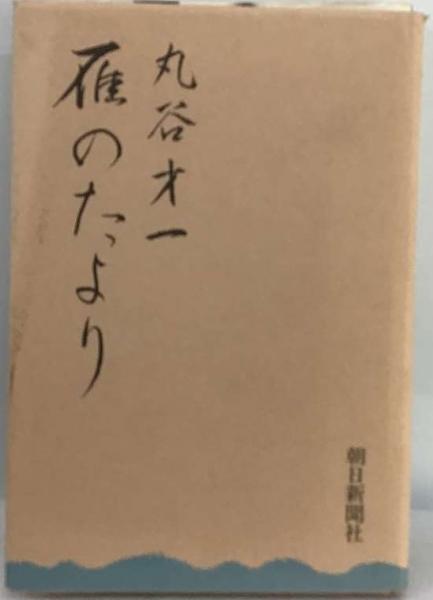 丸谷才一
雁のたより
朝日新聞社